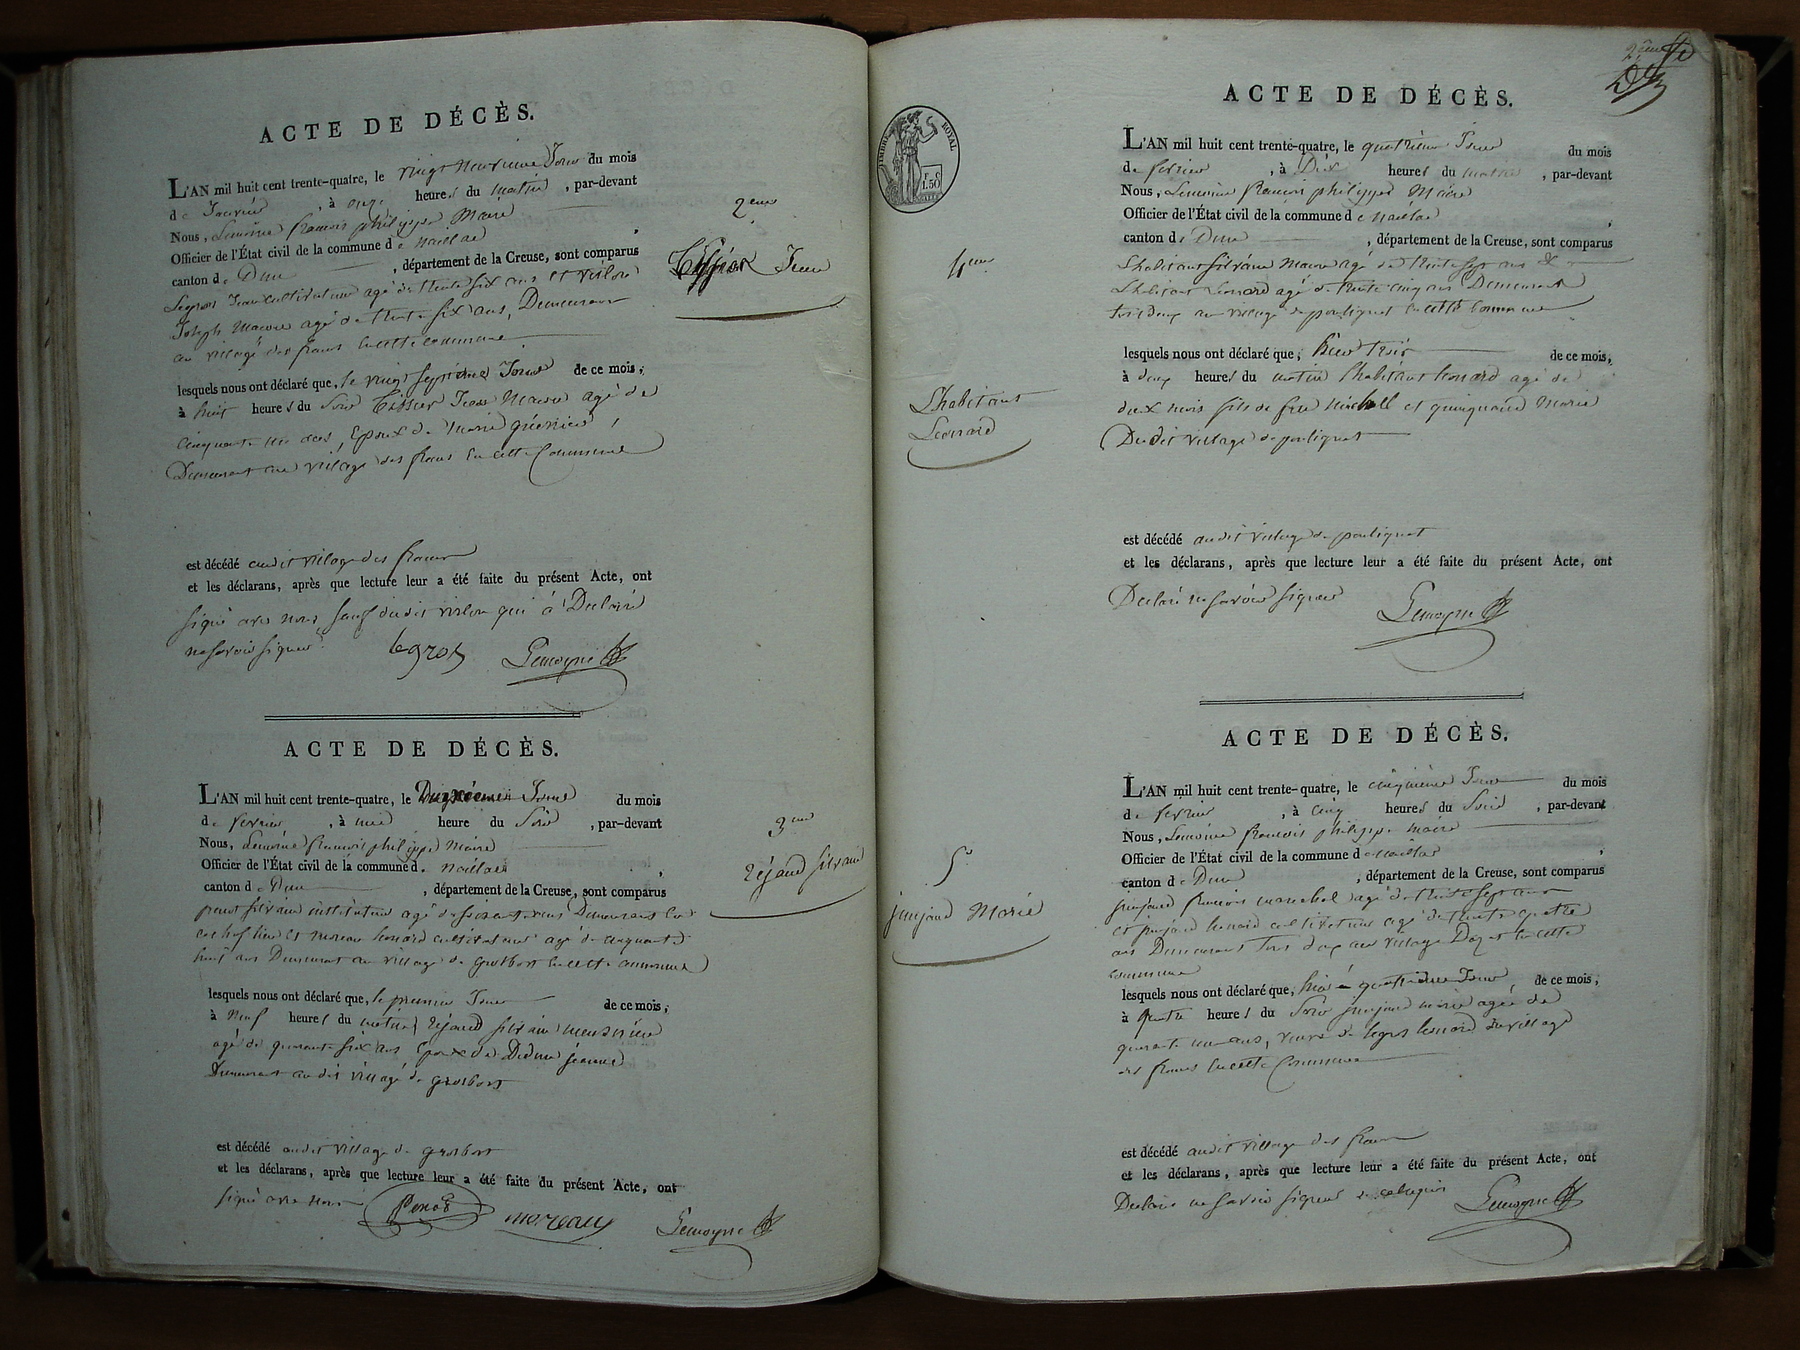 ACTE DE DÉCÈS.
L'AN mil huit cent trente-quatre, le vingt Neuvieme Jour du mois
de Janvier, à onze heures du matin, par-devant
Nous, Lemoine françois philippe Maire
Officier de l'État civil de la commune de naillac
canton de Dun, département de la Creuse, sont comparus
Legros Jean cultivateur agé de trente six ans et
Joseph Macon agé de trente six ans, Demeurant
au village des francs en cette commune
lesquels nous ont déclaré que, le vingt septieme Jour de ce mois,
à huit heures du Soir Tissier Jean Macon agé de
cinquante un ans, Epoux de Marie
Demeurant au village des francs en cette Commune
est décédé audit village des francs
et les déclarans, après que lecture leur a été faite du présent Acte, ont
signé avec nous sauf ledit qui a Declaré
ne savoir signer.
legros Lemoyne
2eme
Tissier Jean
ACTE DE DÉCÈS.
L'AN mil huit cent trente-quatre, le Deuxieme Jour du mois
de fevrier, à une heure du Soir, par-devant
Nous, Lemoine francois philippe Maire
Officier de l'État civil de la commune de naillac,
canton de Dun, département de la Creuse, sont comparus
silvain instituteur agé de soixante ans Demeurant en
ce chef lieu et Moreau leonard cultivateur agé de cinquante
huit ans Demeurant au village de grosbost en cette commune
lesquels nous ont déclaré que, le premier Jour de ce mois,
à Neuf heures du matin Rejaud silvain
agé de quarante six ans Epoux de jeanne
Demeurant audit village de grosbost
est décédé audit village de grosbost
et les déclarans, après que lecture leur a été faite du présent Acte, ont
signé avec nous
moreau Lemoyne
3eme
Rejaud silvain
TIMBRE ROYAL
F. C.
1.50
ACTE DE DÉCÈS.
L'AN mil huit cent trente-quatre, le quatrieme Jour du mois
de fevrier, à Dix heures du matin, par-devant
Nous, Lemoine francois philippe Maire
Officier de l'État civil de la commune de naillac,
canton de Dun, département de la Creuse, sont comparus
Lhabitant silvain Macon agé de trente sept ans &
Lhabitant Leonard agé de trente cinq ans Demeurant
tous deux au village de poulignat en cette Commune
lesquels nous ont déclaré que, hier trois de ce mois,
à deux heures du matin lhabitant leonard agé de
deux mois fils de feu michell et quinquaud Marie
Du dit village de poulignat
est décédé audit village de poulignat
et les déclarans, après que lecture leur a été faite du présent Acte, ont
Declaré ne savoir signer Lemoyne
4eme
Lhabitant
Leonard
ACTE DE DÉCÈS.
L'AN mil huit cent trente-quatre, le cinquieme Jour du mois
de fevrier, à cinq heures du Soir, par-devant
Nous, Lemoine francois philippe maire
Officier de l'État civil de la commune de naillac,
canton de Dun, département de la Creuse, sont comparus
francois marechal agé de trente sept ans
et leonard cultivateur agé de trente quatre
ans Demeurant tous deux au village en cette
commune
lesquels nous ont déclaré que, hier quatrieme Jour de ce mois,
à quatre heures du Soir marie agée de
quarante un ans, veuve de legros leonard du village
des francs en cette Commune
est décédé audit village des francs
et les déclarans, après que lecture leur a été faite du présent Acte, ont
Declaré ne savoir signer Lemoyne
5
Marie